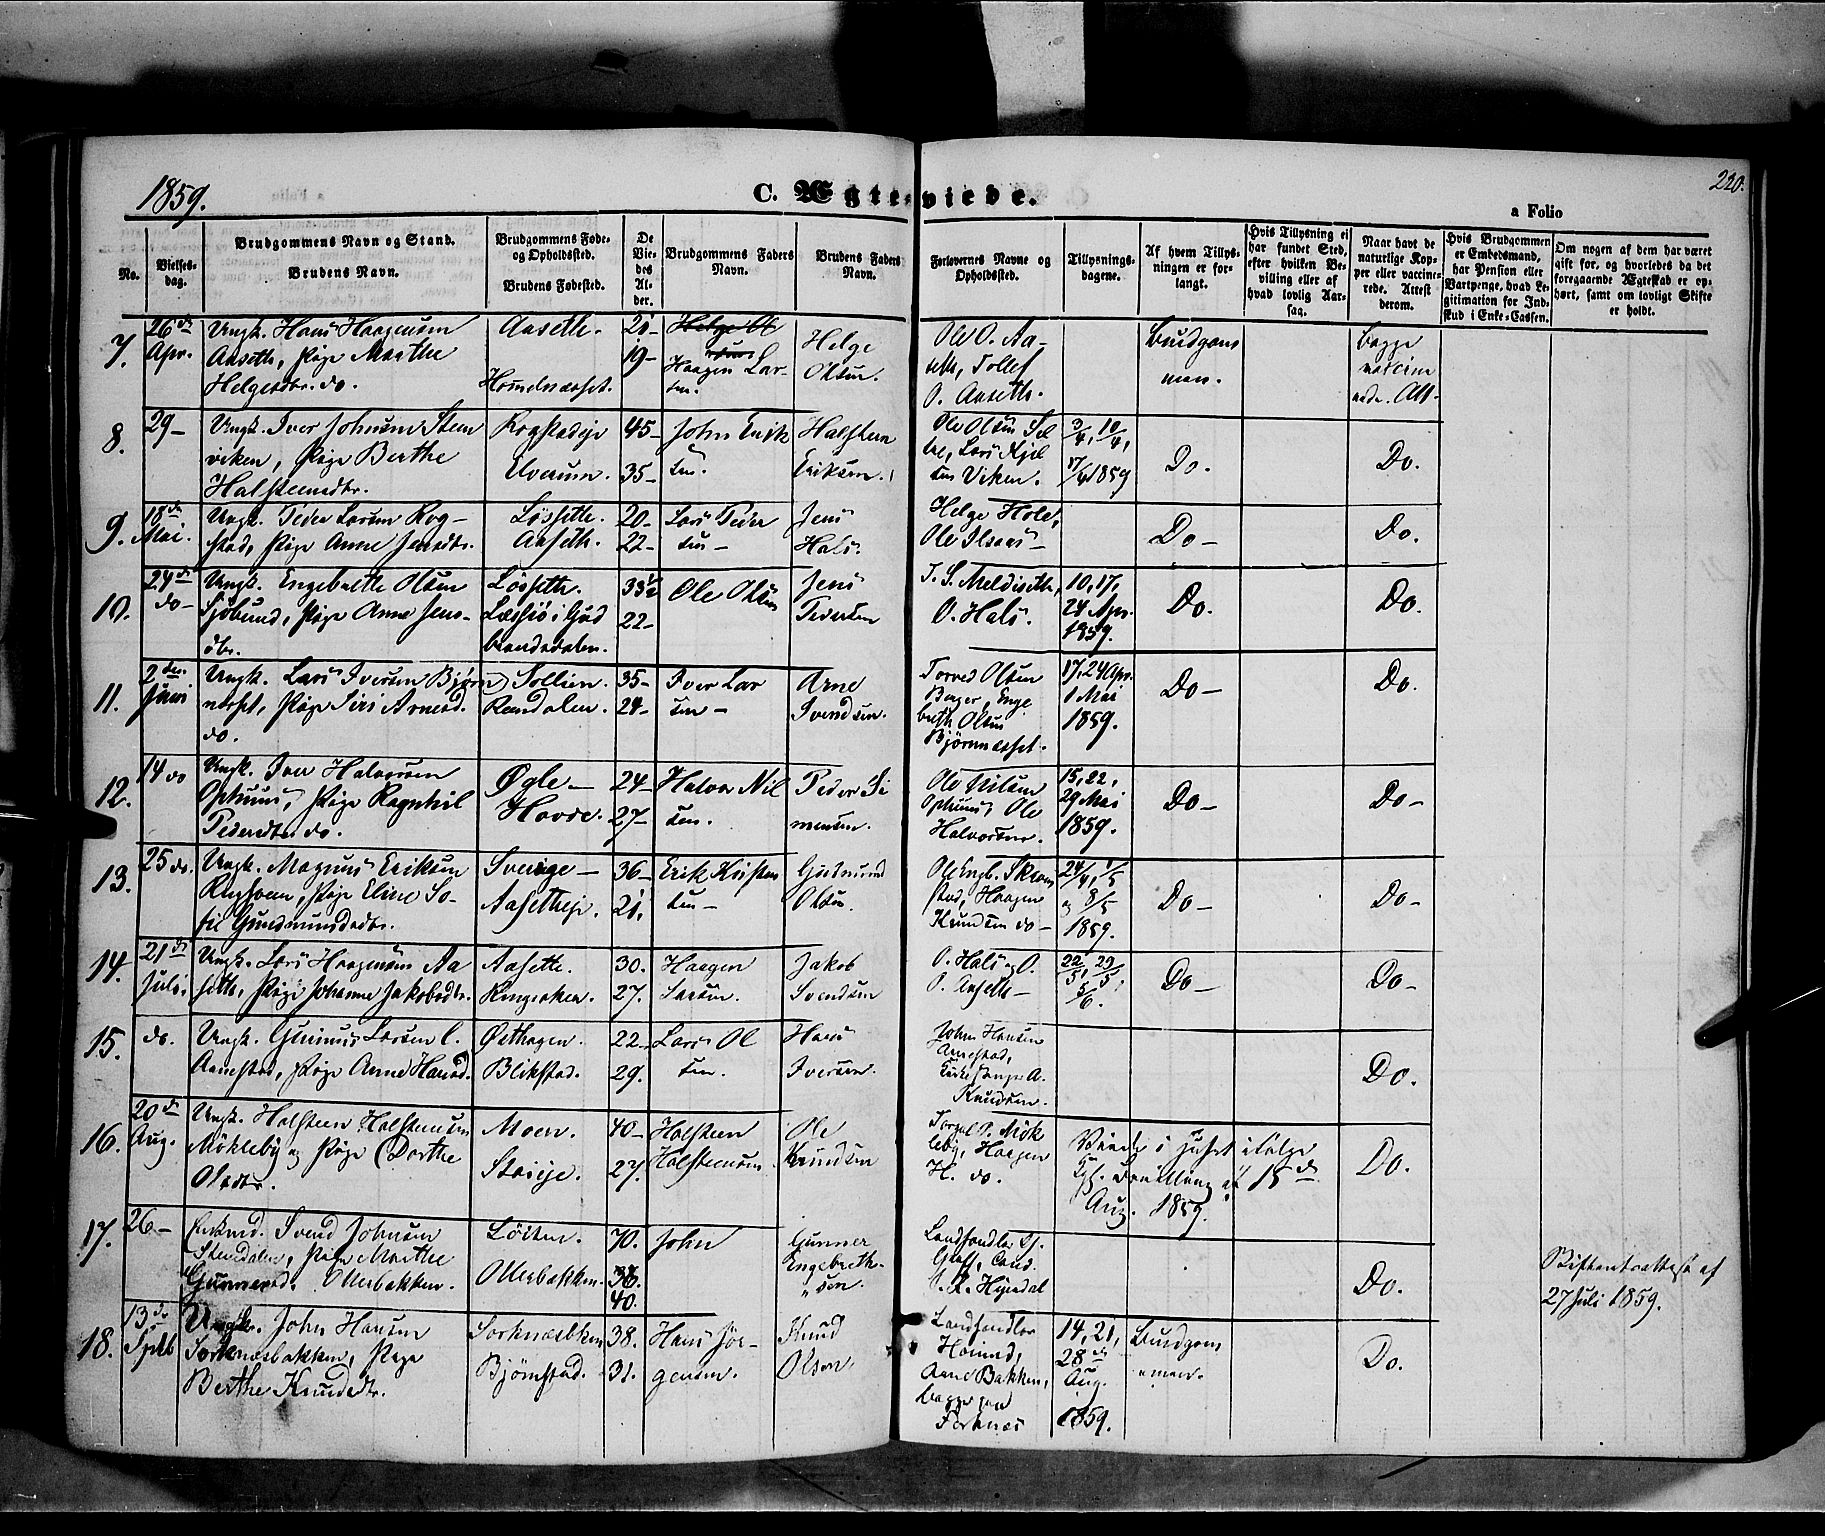 1859.
C. Ægteviede.
220.
a Folio
No.
Vielses-
dag.
Brudgommens Navn og Stand.
Brudens Navn.
Brudgommens Føde-
og Opholdssted.
Brudens Fødested.
De
Vie-
des
Al-
der.
Brudgommens Faders
Navn.
Brudens Faders
Navn.
Forlovernes Navne og
Opholdssted.
Tillysnings-
dagene.
Af hvem Tillys-
ningen er for-
langt.
Hvis Tillysning ei
har fundet Sted,
efter hvilken Be-
villing eller af
hvad lovlig Aar-
sag.
Naar havt de
naturlige Kop-
per eller vaccine-
rede. Attest
derom.
Hvis Brudgommen
er Embedsmand,
har Pension eller
Vartpenge, hvad Le-
gitimation for Ind-
skud i Enke-Cassen.
Om nogen af dem har været
gift før, og hvorledes da det
foregaaende Ægteskab er op-
hørt, samt om lovligt Skifte
er holdt.
7.
26de
Apr.
Ungk. Hans Haagensen
Aaseth, Pige Marthe
Helgesdtr. do.
Aaseth.
21-
19-
Helge Ol
Haagen Lar-
sen.
Helge
Olsen.
Ole O. Aa-
seth, Tollef
O. Aaseth.
Brudgom
men.
begge
vaccine
rede. Att.
8.
29-
Ungk. Iver Johnsen Sten
viken, Pige Berthe
Halsteensdtr.
Rogstadeje
Elverum.
45-
35-
John Erik
sen.
Halsteen
Eriksen.
Ole Olsen
Viken.
3/4, 10/4,
17/4 1859
Do.
Do.
9.
18de
Mai.
Ungk. Peder Larsen Rog-
stad, Pige Anne Jensdtr.
Løssette.
Aaseth.
20-
22-
Lars Peder
sen-
Jens
Hals.
Helge Hole,
Do-
Do.
10.
24de
do-
Ungk. Engebreth Olsen
Sjøbund, Pige Anne Jens-
dtr.
Løssette.
Læssø i Gud
brandsdalen.
33½
22-
Ole Olsen
Jens
Pedersen
O. Hals.
10, 17,
24 Apr.
1859.
Do.
Do.
11.
2den
Juni
Ungk. Lars Iversen Bjørn
næsset, Pige Siri Arnesd.
do.
Sollien.
Rendalen.
35-
24-
Iver Lar
sen-
Arne
Svendsen.
Torved Olsen
Berger, Enge
breth Olsen
Bjørnnæsset.
17, 24 Apr.
1 Mai
1859.
Do-
Do.
12.
14 do
Ungk. Iver Halvorsen
Ophuus, Pige Ragnhil
Pedersdtr. do.
Øgle-
Hovde.
24-
27-
Halvor Nil
sen.
Peder Si
mensen.
Ole Nilsen
Ophuus, Ole
Halvorsen.
15, 22,
29 Mai
1859.
Do-
Do-
13.
25 do.
Ungk. Magnus Eriksen
Pige Eline So-
fie Gudmundsdtr.
Sverige-
Aasetheje.
36-
21.
Erik Kristen
sen-
Gudmund
Olsen.
Ole Engb. Skram
stad, Haagen
Knudsen do-
24/4, 1/5
og 8/5
1859.
Do-
Do-
14.
21de
Juli
Ungk. Lars Haagensen Aa
seth, Pige Johanne Jakobsdtr.
Aasette.
Ringsaker.
30.
27.
Haagen
Larsen.
Jakob
Svendsen
O. Hals og O.
O. Aaseth-
22/5, 29/5,
5/6.
Do-
Do-
15.
do.
Ungk. Gunnus Larsen l.
Arnestad, Pige Anne Hansd.
Østhagen.
Blikstad.
22-
29.
Lars Ol
sen.
Hans
Iversen.
John Hansen
Arnestad,
Kirkesanger A.
Knudsen.
Do.
16.
20de
Aug.
Ungk. Halsteen Halsteensen
Møkleby og Pige Dorthe
Olsdtr.
Moen.
Staieje.
40-
27.
Halsteen
Halsteensen.
Ole
Knudsen
Møk
leby, Haagen
H. do.
Viede i Huset ifølge
Kgl. Bevilling af 15de
Aug. 1859.
Do.
17.
26-
Enkmd. Svend Johnsen
Stendalen, Pige Marthe
Gunnersd. Ollerbakken.
Løiten.
Ollerbakken.
70.
36.
40.
John
Gunner
Engebreth-
sen.
Landhandler
Græff, Cand.
Do.
Skifteattest af
27 Juli 1859.
18.
13de
Septb
Ungk. John Hansen
Sorknæsbakken, Pige
Berthe Knudsdtr.
Sorknæsbken
Bjørnstad.
38.
31.
Hans Jør-
gensen.
Knud
Olsen
Landhandler
Arne Bakken,
begge paa
Sorknæs
14, 21,
28de
Aug.
1859.
Brudgom
men.
Do.